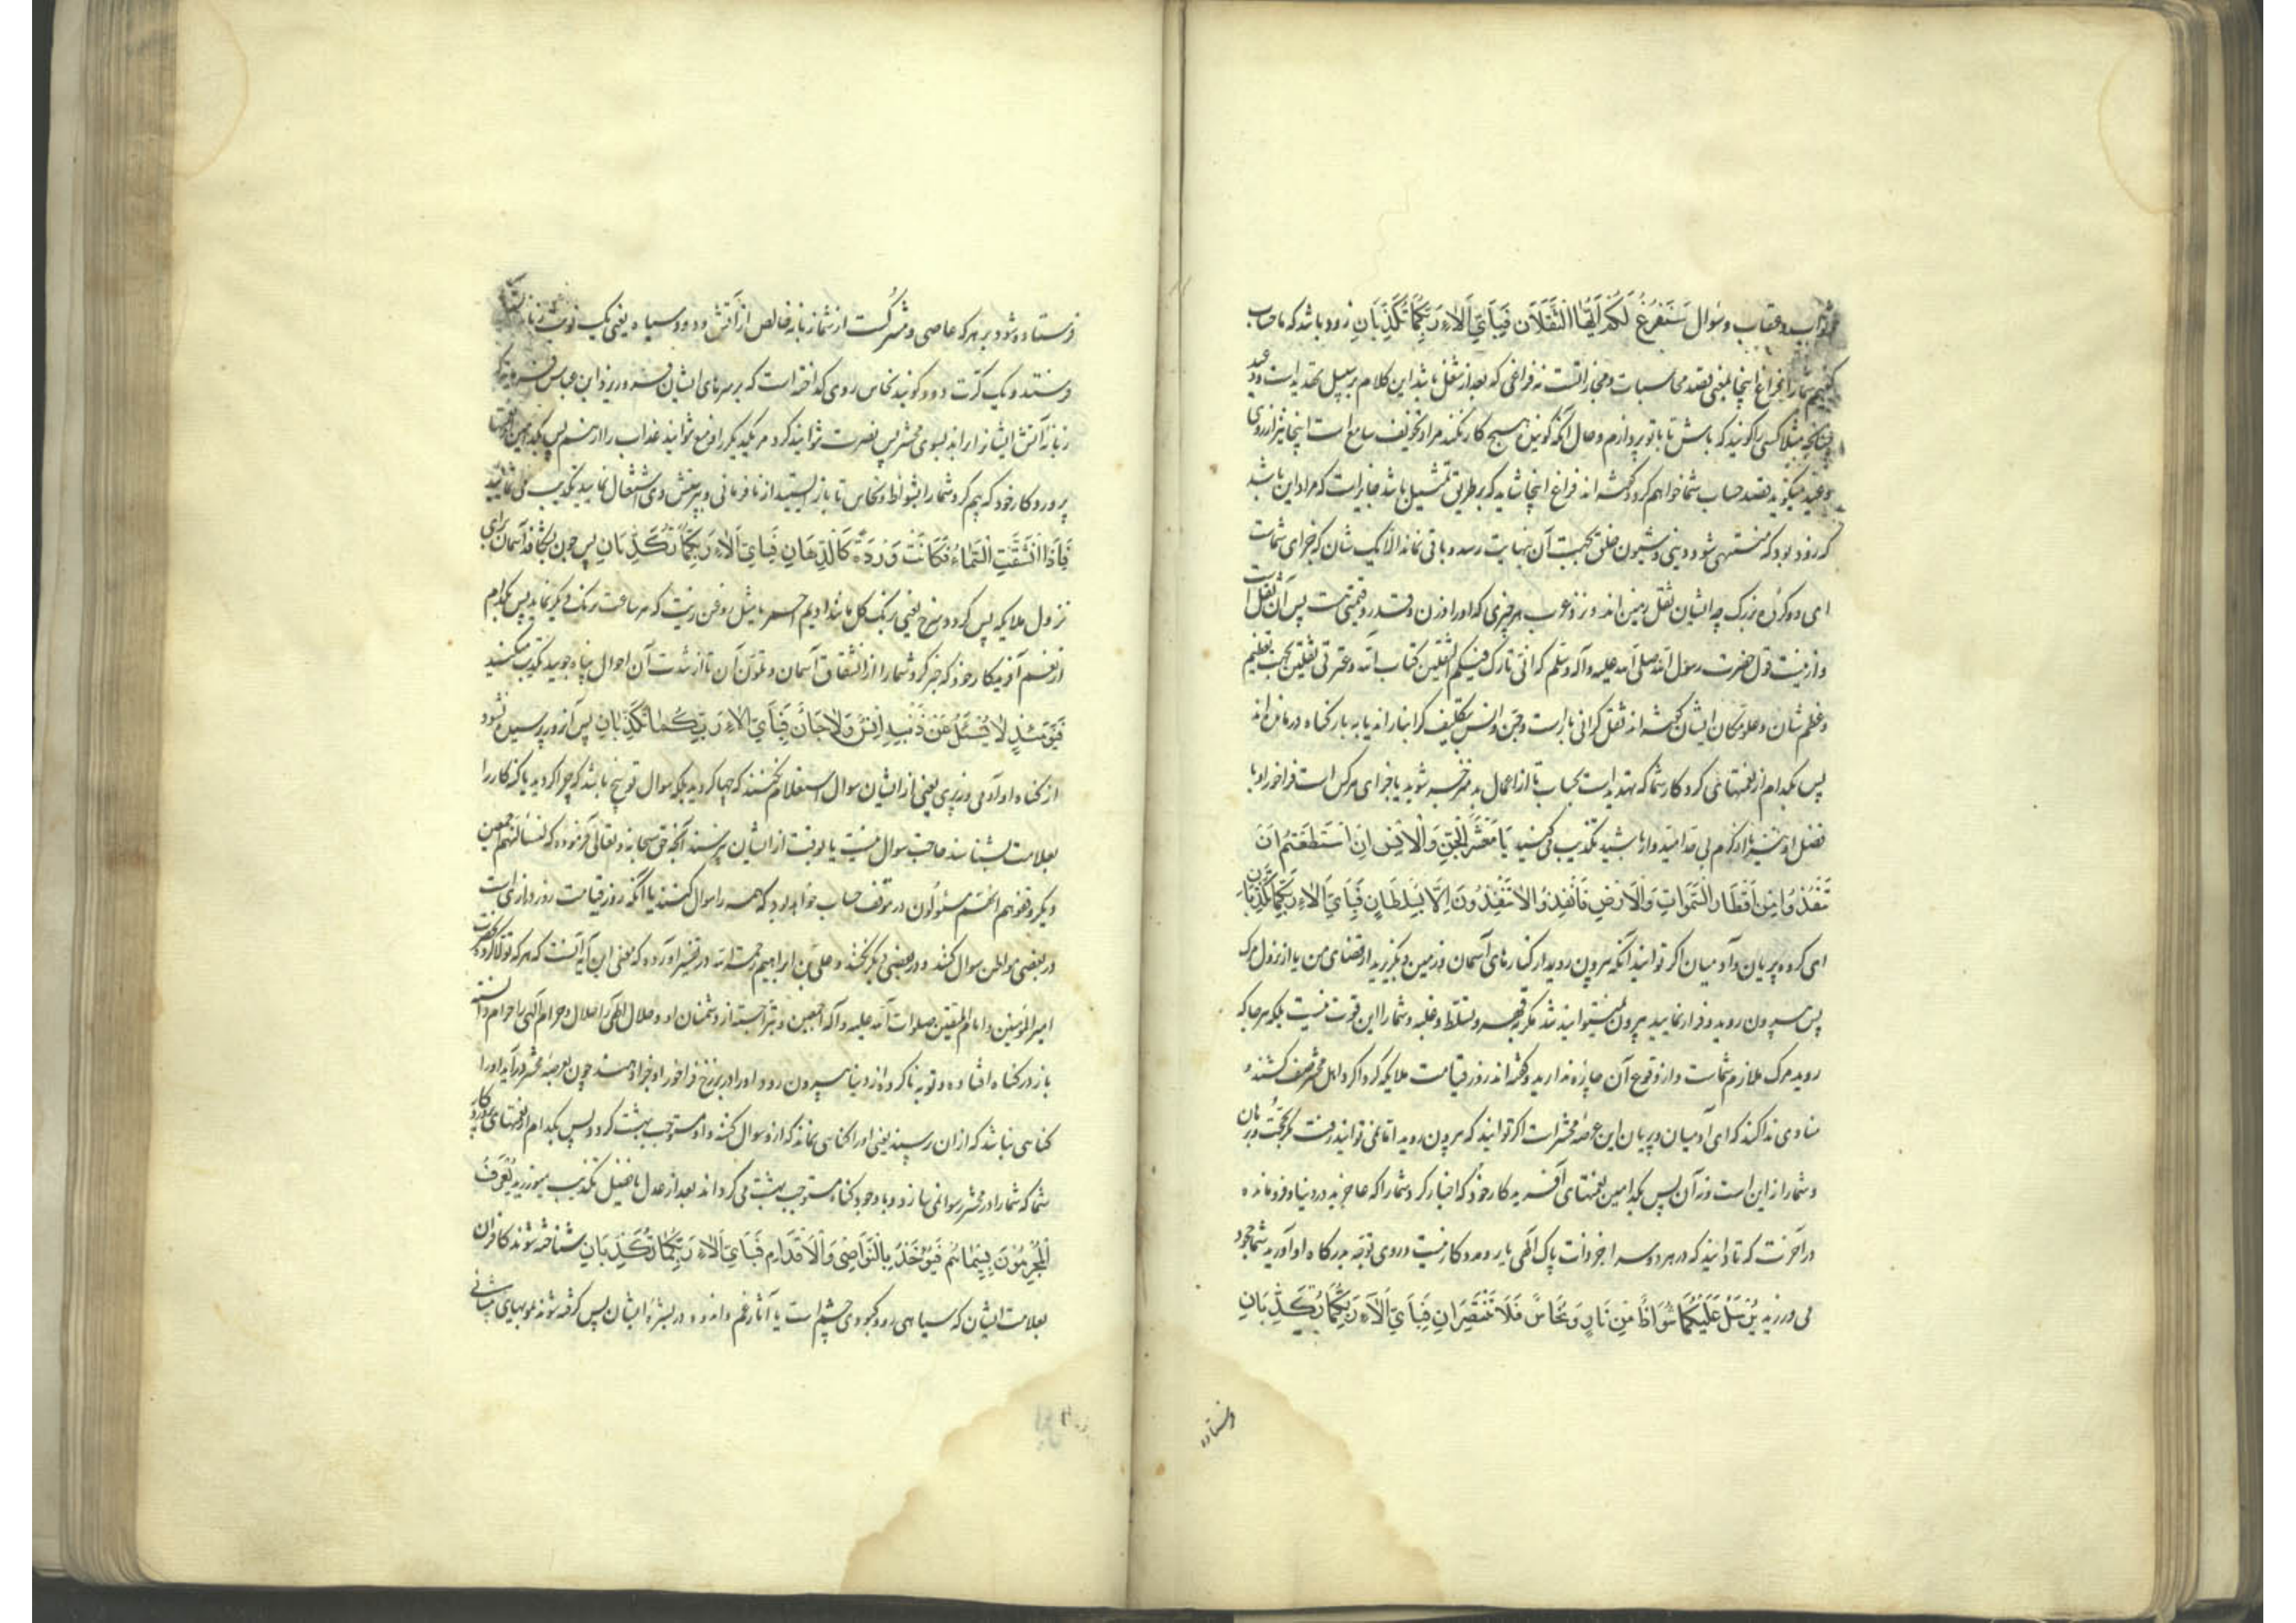 ثواب و عقاب و سوال سَنَفْرُغُ لَكُمْ اَيُّهَا الثَّقَلَانِ فَبِاَيِّ اٰلَاءِ رَبِّكُمَا تُكَذِّبَانِ زود باشد که ما حساب
کنیم شما را فراغ اینجا بمعنی قصد محاسبات و مجازاتست نه فراغی که بعد از شغل باشد این کلام بر سبیل تهدید است و وعید
چنانچه مثلا کسی را گویند که باش تا با تو پردازم و حال آنکه گوینده هیچ کار نکند مراد تخویف سامع است اینجا نیز از روی
وعید میگوید قصد حساب شما خواهم کرد و گفته‌اند فراغ اینجا شاید که بر طریق تمثیل باشد جایز است که مراد این باشد
که زود بود که منتهی شود دینی و شیون خلق بحجت آن نهایت رسد و باقی نماند الا یک شان که جزای شماست
ای دو گروه بزرگ چه ایشان ثقل زمین‌اند و نزد عرب هر چیزی که او را وزن و قدر و قیمتی هست پس آن ثقل است
و ازینست قول حضرت رسول الله صلی الله علیه و آله و سلم که انی تارک فیکم الثقلین کتاب الله و عترتی ثقلین بجهت تعظیم
و عظم شان و علو مکان ایشان گفته‌اند ثقل گرانی بار است و جن و انس بتکلیف گرانبارند یا به بار گناه درمانده‌اند
پس بکدام از نعمتهای کردگار شما که تهدید است بحساب تا از اعمال بد منزجر شوید یا جزای هر کس است فراخور او یا
فضل او نیز از کرم بی حد امیدوار باشید تکذیب می‌کنید يَا مَعْشَرَ الْجِنِّ وَالْاِنْسِ اِنِ اسْتَطَعْتُمْ اَنْ
تَنْفُذُوا مِنْ اَقْطَارِ السَّمٰوَاتِ وَالْاَرْضِ فَانْفُذُوا لَا تَنْفُذُونَ اِلَّا بِسُلْطَانٍ فَبِاَيِّ اٰلَاءِ رَبِّكُمَا تُكَذِّبَانِ
ای گروه پریان و آدمیان اگر توانید آنکه بیرون روید از کنارهای آسمان و زمین و بگریزید از قضای من یا از نزول مرگ
پس بیرون روید و فرار نمایید بیرون نمیتوانید شد مگر بقهر و تسلط و غلبه و شما را این قوت نیست بلکه هر جا که
روید مرگ ملازم شماست و از وقوع آن چاره ندارید و گفته‌اند روز قیامت ملایکه گرداگرد اهل محشر صف کشند و
منادی ندا کند که ای آدمیان و پریان این عرصه محشر است اگر توانید که بیرون روید اما نمی توانید رفت مگر بحجت و برهان
و شما را از این است و نه آن پس بکدامین نعمتهای آفریدگار خود که اخبار کرد شما را که عاجزید در دنیا و فرومانده
در آخرت که تا دانید که در هر دو سرا جز ذات پاک الهی یار و مددکار نیست و روی توجه بدرگاه او آورید شما جحود
می ورزید يُرْسَلُ عَلَيْكُمَا شُوَاظٌ مِنْ نَارٍ وَنُحَاسٌ فَلَا تَنْتَصِرَانِ فَبِاَيِّ اٰلَاءِ رَبِّكُمَا تُكَذِّبَانِ
فرستاده
فرستاده شود بر هر که عاصی و مشرکست از شما زبانه خالص از آتش و دود سیاه یعنی یک نوبت زبانه
فرستند و یک کرت دود و گویند نحاس روی گداخته است که بر سرهای ایشان فرو ریزد ابن عباس
زبانه آتش ایشان را براند بسوی محشر پس نصرت نتوانید کرد مر یکدیگر را و منع نتوانید عذاب را از هم پس بکدامین
پروردگار خود که بیم کرد شما را بشواظ و نحاس تا باز ایستید از نافرمانی و بپرستش وی اشتغال نمایید تکذیب می نمایید
فَاِذَا انْشَقَّتِ السَّمَاءُ فَكَانَتْ وَرْدَةً كَالدِّهَانِ فَبِاَيِّ اٰلَاءِ رَبِّكُمَا تُكَذِّبَانِ پس چون بشکافد آسمان برای
نزول ملایکه پس گردد سرخ یعنی برنگ گل باشد ادیم احمر یا مثل روغن زیت که هر ساعت برنگی دیگر نماید پس بکدام
از نعم آفریدگار خود که خبر کرد شما را از انشقاق آسمان و تلون آن تا از شدت آن احوال پناه جویید تکذیب میکنید
فَيَوْمَئِذٍ لَا يُسْئَلُ عَنْ ذَنْبِهِ اِنْسٌ وَلَا جَانٌّ فَبِاَيِّ اٰلَاءِ رَبِّكُمَا تُكَذِّبَانِ پس آنروز پرسیده نشود
از گناه او آدمی و نه پری یعنی از ایشان سوال استعلام نکنند که چها کردید بلکه سوال توبیخ باشد که چرا کردید یا گنه‌کار را
بعلامت بشناسند حاجت سوال نیست یا بوقت از ایشان پرسند آنچه حق سبحانه و تعالی فرموده که لنسالنهم اجمعین
و دیگر وقفوهم انهم مسئولون در موقف حساب خواهد بود که همه را سوال کنند یا آنکه روز قیامت روز درازی است
در بعضی مواطن سوال کنند و در بعضی دیگر نکنند و علی بن ابراهیم رحمة الله در تفسیر آورده که معنی این آیه آنست که هر که تولا کرد بحضرت
امیر المؤمنین و امام المتقین صلوات الله علیه و آله اجمعین و تبرا جست از دشمنان او و حلال الهی را حلال و حرام الهی را حرام دانسته
باز در گناه افتاده و توبه ناکرده از دنیا بیرون رود او را در برزخ فراخور او جزا دهند چون بعرصه محشر درآید او را
گناهی نباشد که از ان پرسند یعنی او را گناهی نماند که ازو سوال کنند و او مستوجب بهشت گردد پس بکدام از نعمتهای پروردگار
شما که شما را در محشر رسوا نمی سازد و با وجود گناه مستوجب بهشت می گرداند بعد از عدل یا فضل تکذیب میورزید يُعْرَفُ
الْمُجْرِمُونَ بِسِيمَاهُمْ فَيُؤْخَذُ بِالنَّوَاصِي وَالْاَقْدَامِ فَبِاَيِّ اٰلَاءِ رَبِّكُمَا تُكَذِّبَانِ شناخته شوند کافران
بعلامت ایشان که سیاهی رو و کبودی چشم است یا آثار غم و اندوه در بشره ایشان پس گرفته شوند بمویهای پیشانی